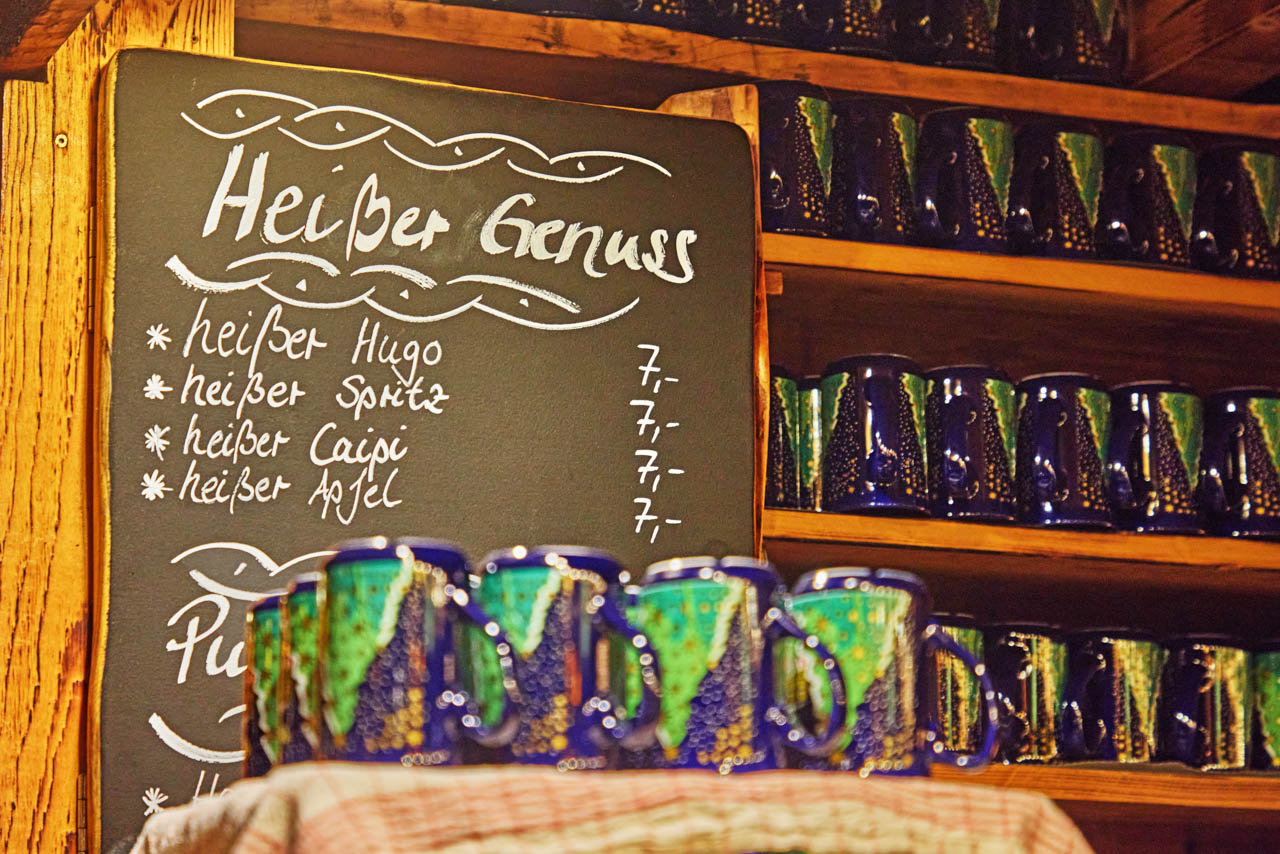 Heißer Genuss
* heißer Hugo 7,-
* heißer Spritz 7,-
* heißer Caipi 7,-
* heißer Apfel 7,-